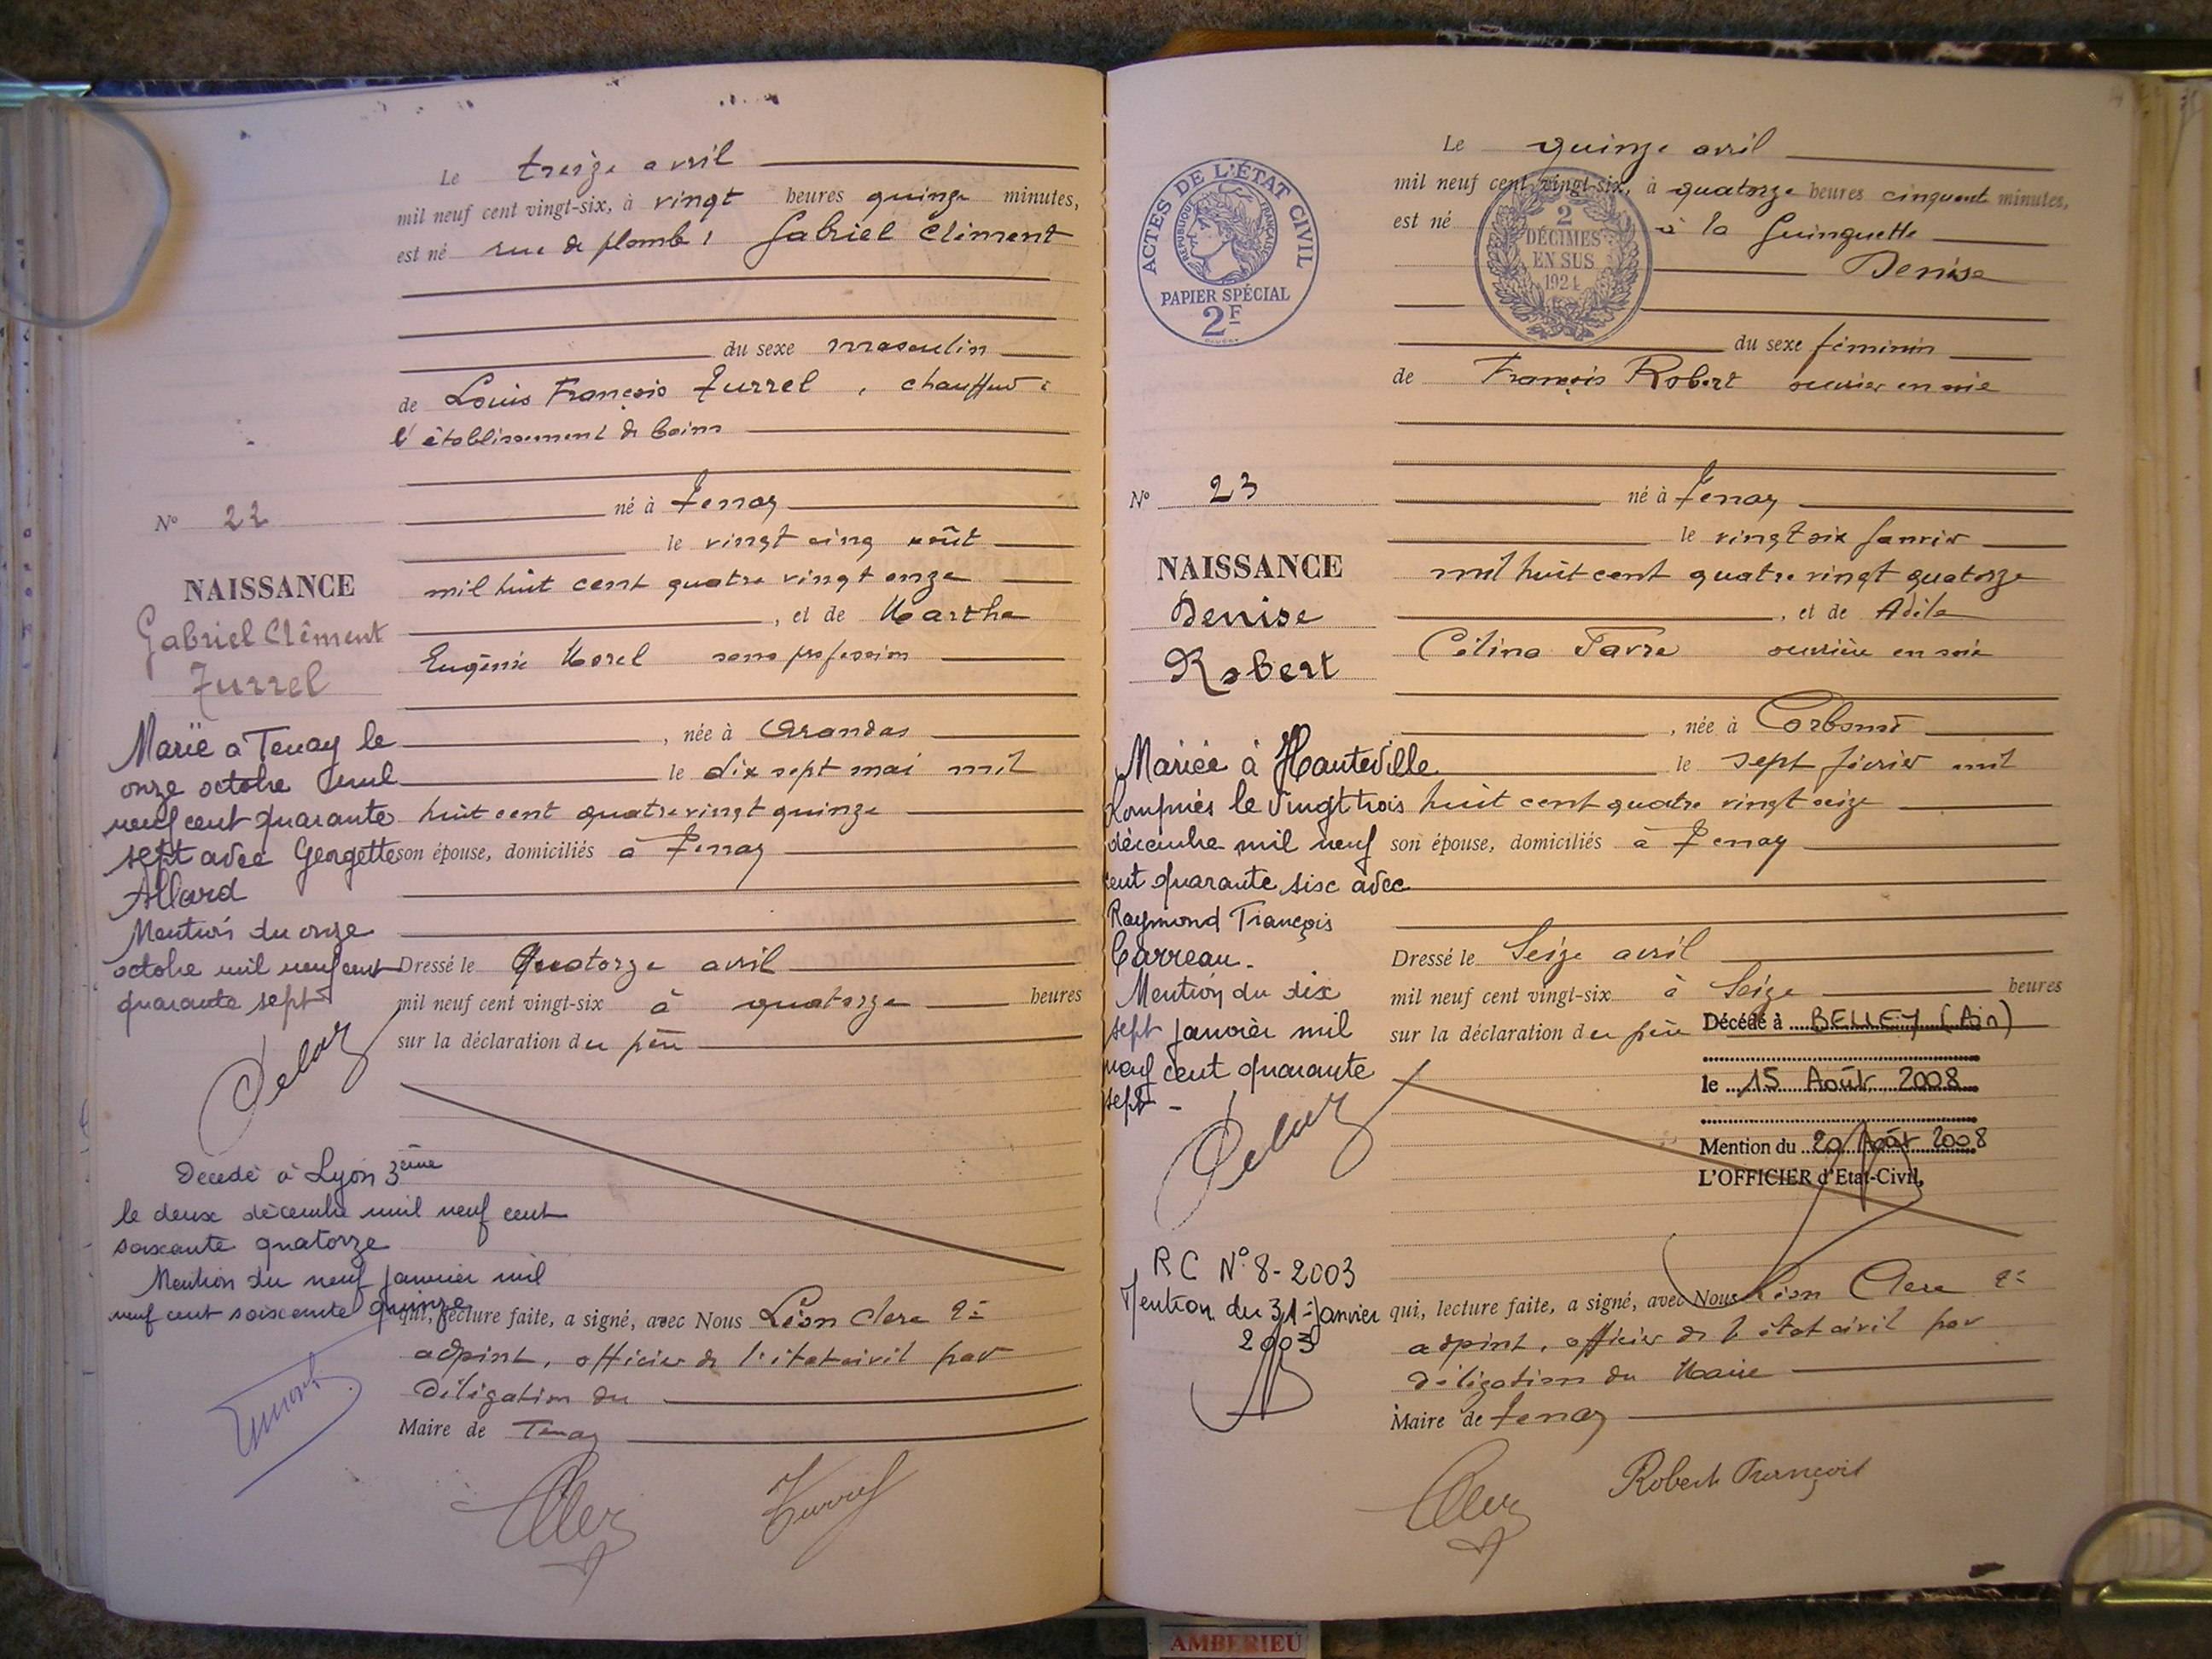 Le treize avril
mil neuf cent vingt-six, à vingt heures quinze minutes,
est né rue de plomb, Gabriel Clément
du sexe masculin
de Louis François Turrel, chauffeur à
l'établissement de bains
né à Tenay
le vingt cinq août
mil huit cent quatre vingt onze
, et de Marthe
Eugénie Morel sans profession
, née à Arandas
le dix sept mai mil
huit cent quatre vingt quinze
son épouse, domiciliés à Tenay
Dressé le Quatorze avril
mil neuf cent vingt-six à quatorze heures
sur la déclaration du père
qui, lecture faite, a signé, avec Nous Léon Clerc 2e
adjoint, officier de l'état civil par
délégation du
Maire de Tenay
N° 22
NAISSANCE
Gabriel Clément
Turrel
Marié à Tenay le
onze octobre mil
neuf cent quarante
sept avec Georgette
Allard
Mention du onze
octobre mil neuf cent
quarante sept
Décédé à Lyon 3ème
le deux décembre mil neuf cent
soixante quatorze
Mention du neuf janvier mil
neuf cent soixante quinze
Turrel
ACTES DE L'ÉTAT CIVIL
RÉPUBLIQUE FRANÇAISE
PAPIER SPÉCIAL
2F
2
DÉCIMES
EN SUS
1924
Le quinze avril
mil neuf cent vingt-six, à quatorze heures cinquante minutes,
est né à la Guinguette
Denise
du sexe féminin
de François Robert ouvrier en soie
né à Tenay
le vingt six janvier
mil huit cent quatre vingt quatorze
, et de Adèle
Célina Favre ouvrière en soie
, née à
le sept février mil
huit cent quatre vingt seize
son épouse, domiciliés à Tenay
Dressé le Seize avril
mil neuf cent vingt-six à Seize heures
sur la déclaration du père
qui, lecture faite, a signé, avec Nous Léon Clerc 2e
adjoint, officier de l'état civil par
délégation du Maire
Maire de Tenay
Robert François
N° 23
NAISSANCE
Denise
Robert
Mariée à Hauteville
Lompnès le vingt trois
décembre mil neuf
cent quarante six avec
Raymond François
Carreau.
Mention du dix
sept janvier mil
neuf cent quarante
sept -
R C N° 8-2003
Mention du 31 janvier
2003
Décédé à BELLEY (Ain)
le 15 Août 2008
Mention du 20 Août 2008
L'OFFICIER d'Etat-Civil,
AMBERIEU